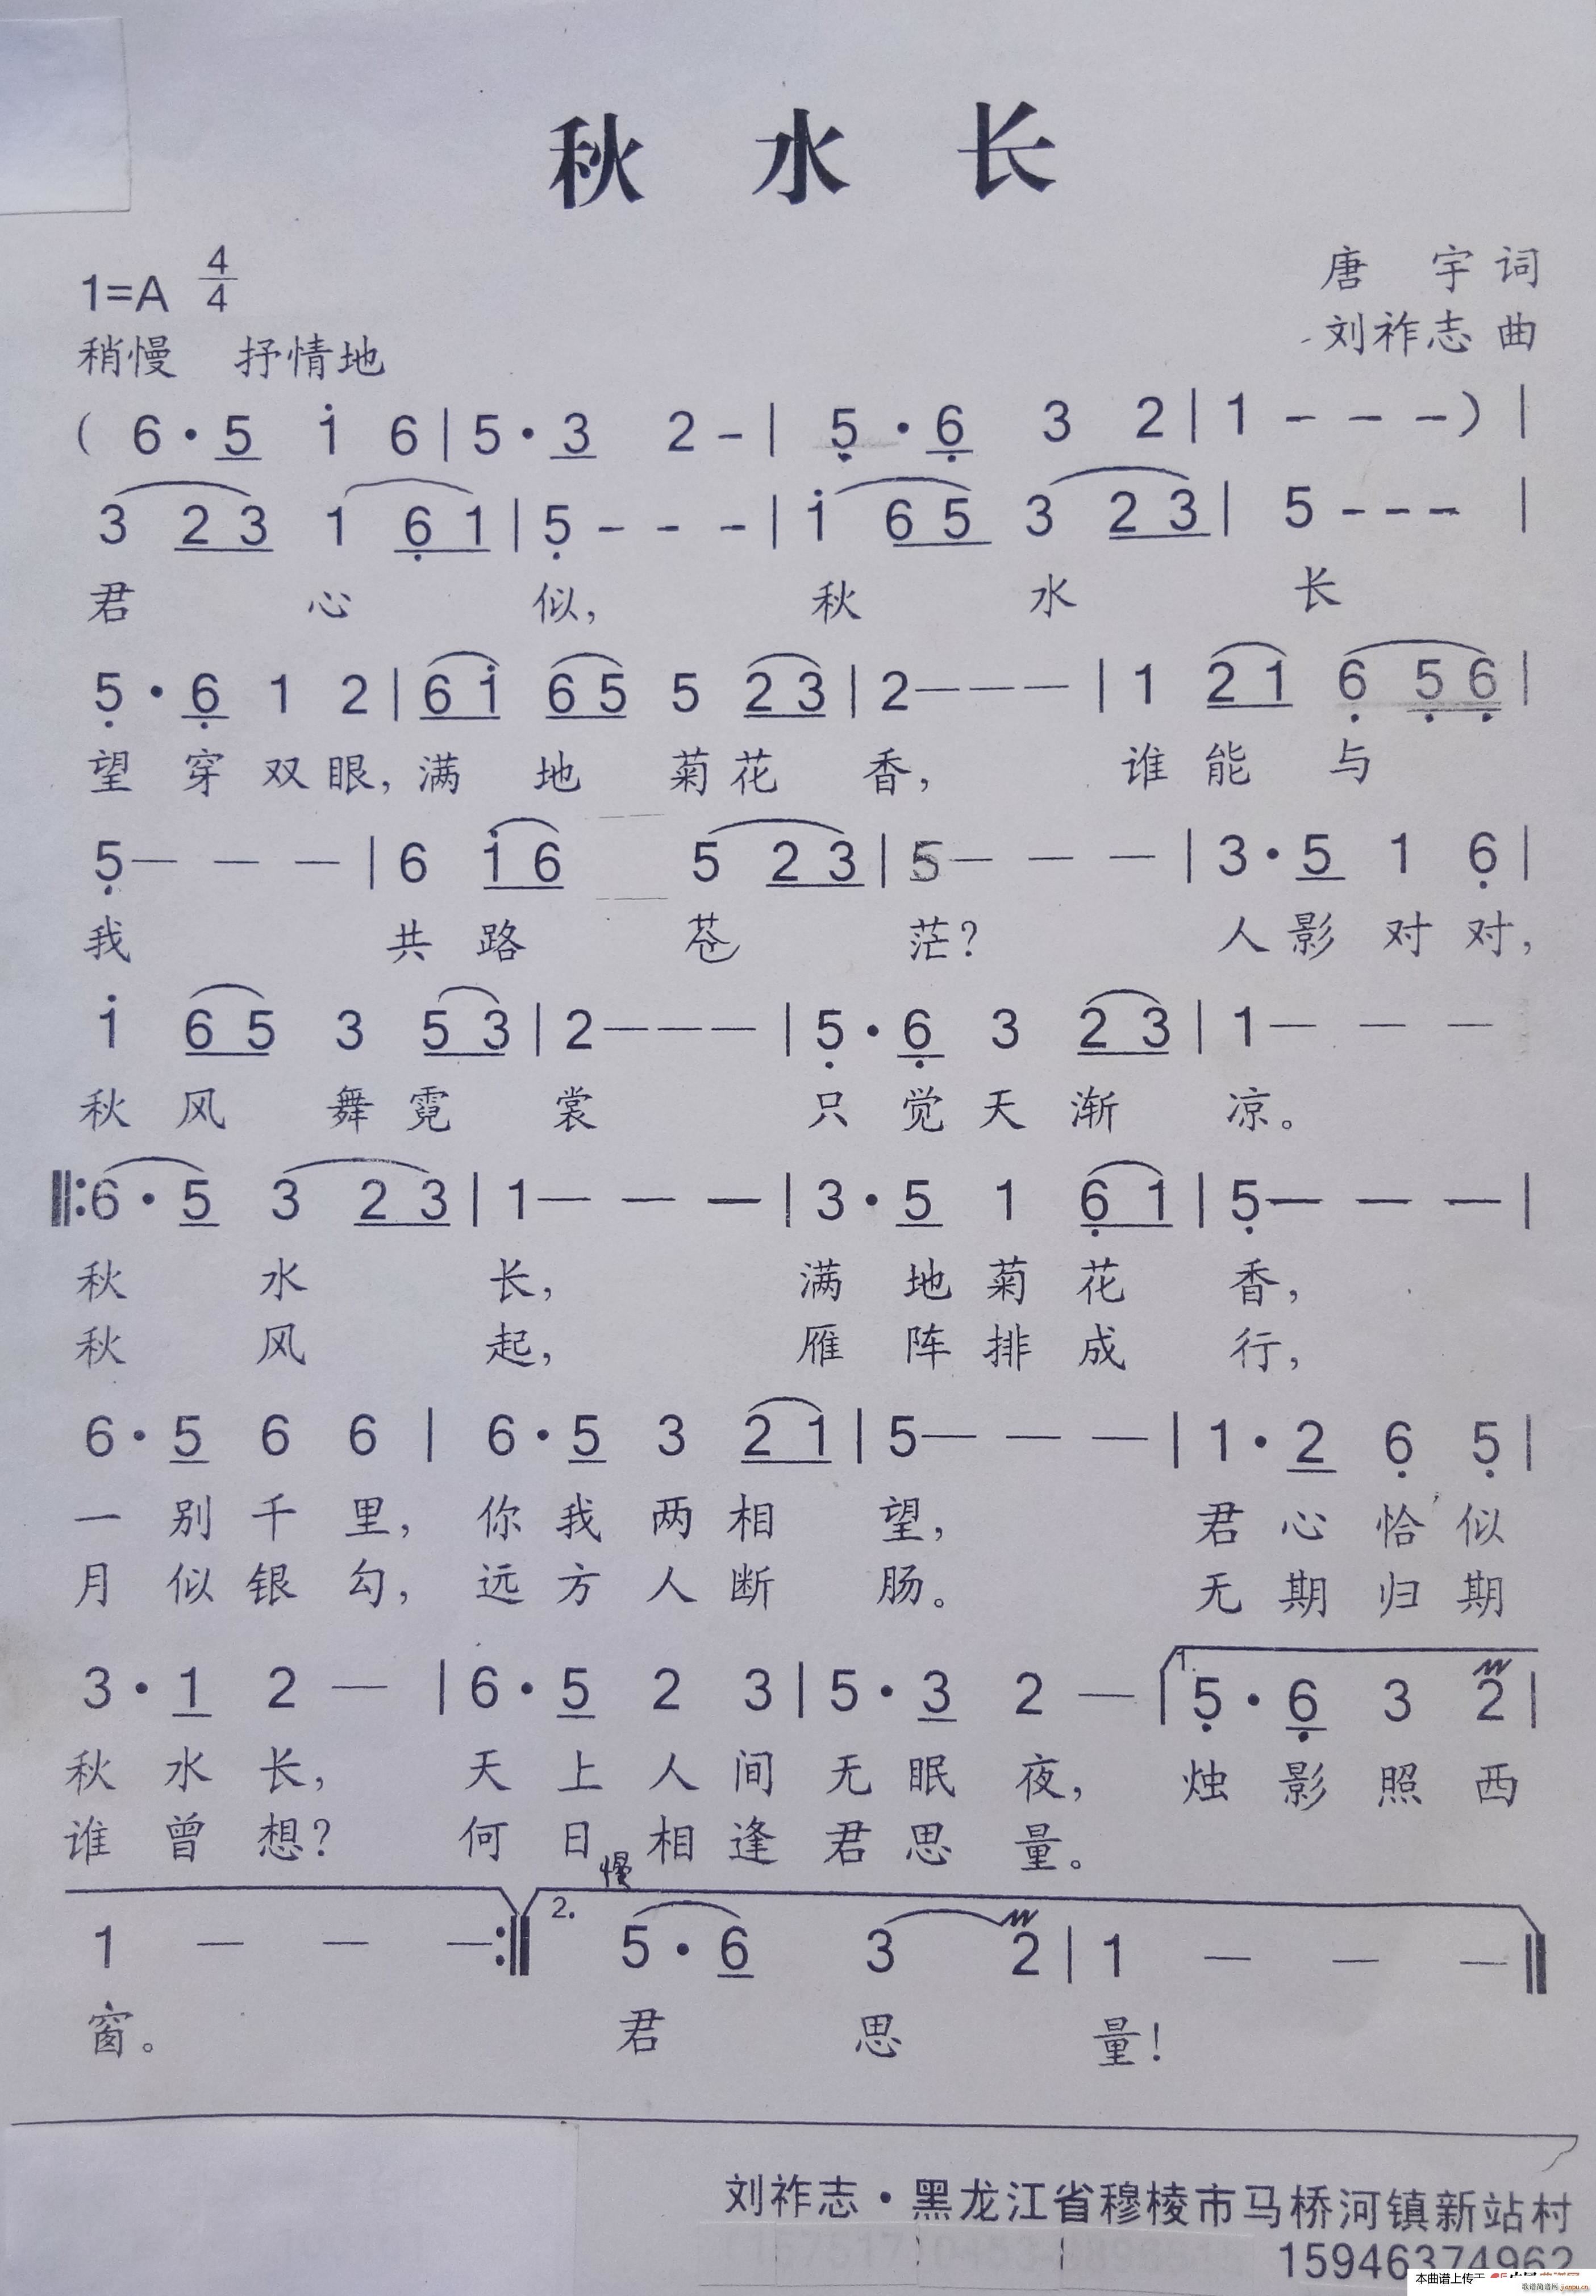 秋 水 长
1=A 4/4
唐 宇 词
稍慢 抒情地
刘祚志 曲
( 6 · 5 i 6 | 5 · 3 2 - | 5 · 6 3 2 | 1 - - - ) |
3 2 3 1 6 1 | 5 - - - | i 6 5 3 2 3 | 5 - - - |
君 心 似, 秋 水 长
5 · 6 1 2 | 6 i 6 5 5 2 3 | 2 — — — | 1 2 1 6 5 6 |
望 穿 双 眼, 满 地 菊 花 香, 谁 能 与
5 — — — | 6 i 6 5 2 3 | 5 — — — | 3 · 5 1 6 |
我 共 路 苍 茫? 人 影 对 对,
i 6 5 3 5 3 | 2 — — — | 5 · 6 3 2 3 | 1 — — —
秋 风 舞 霓 裳 只 觉 天 渐 凉。
‖: 6 · 5 3 2 3 | 1 — — — | 3 · 5 1 6 1 | 5 — — — |
秋 水 长, 满 地 菊 花 香,
秋 风 起, 雁 阵 排 成 行,
6 · 5 6 6 | 6 · 5 3 2 1 | 5 — — — | 1 · 2 6 5 |
一 别 千 里, 你 我 两 相 望, 君 心 恰 似
月 似 银 勾, 远 方 人 断 肠。 无 期 归 期
3 · 1 2 — | 6 · 5 2 3 | 5 · 3 2 — | 1. 5 · 6 3 2 |
秋 水 长, 天 上 人 间 无 眠 夜, 烛 影 照 西
谁 曾 想? 何 日 相 逢 君 思 量。
慢
1 — — — :‖ 2. 5 · 6 3 2 | 1 — — — ‖
窗。 君 思 量!
刘祚志·黑龙江省穆棱市马桥河镇新站村
15946374962
本曲谱上传于
歌谱简谱网 jianpu.cn